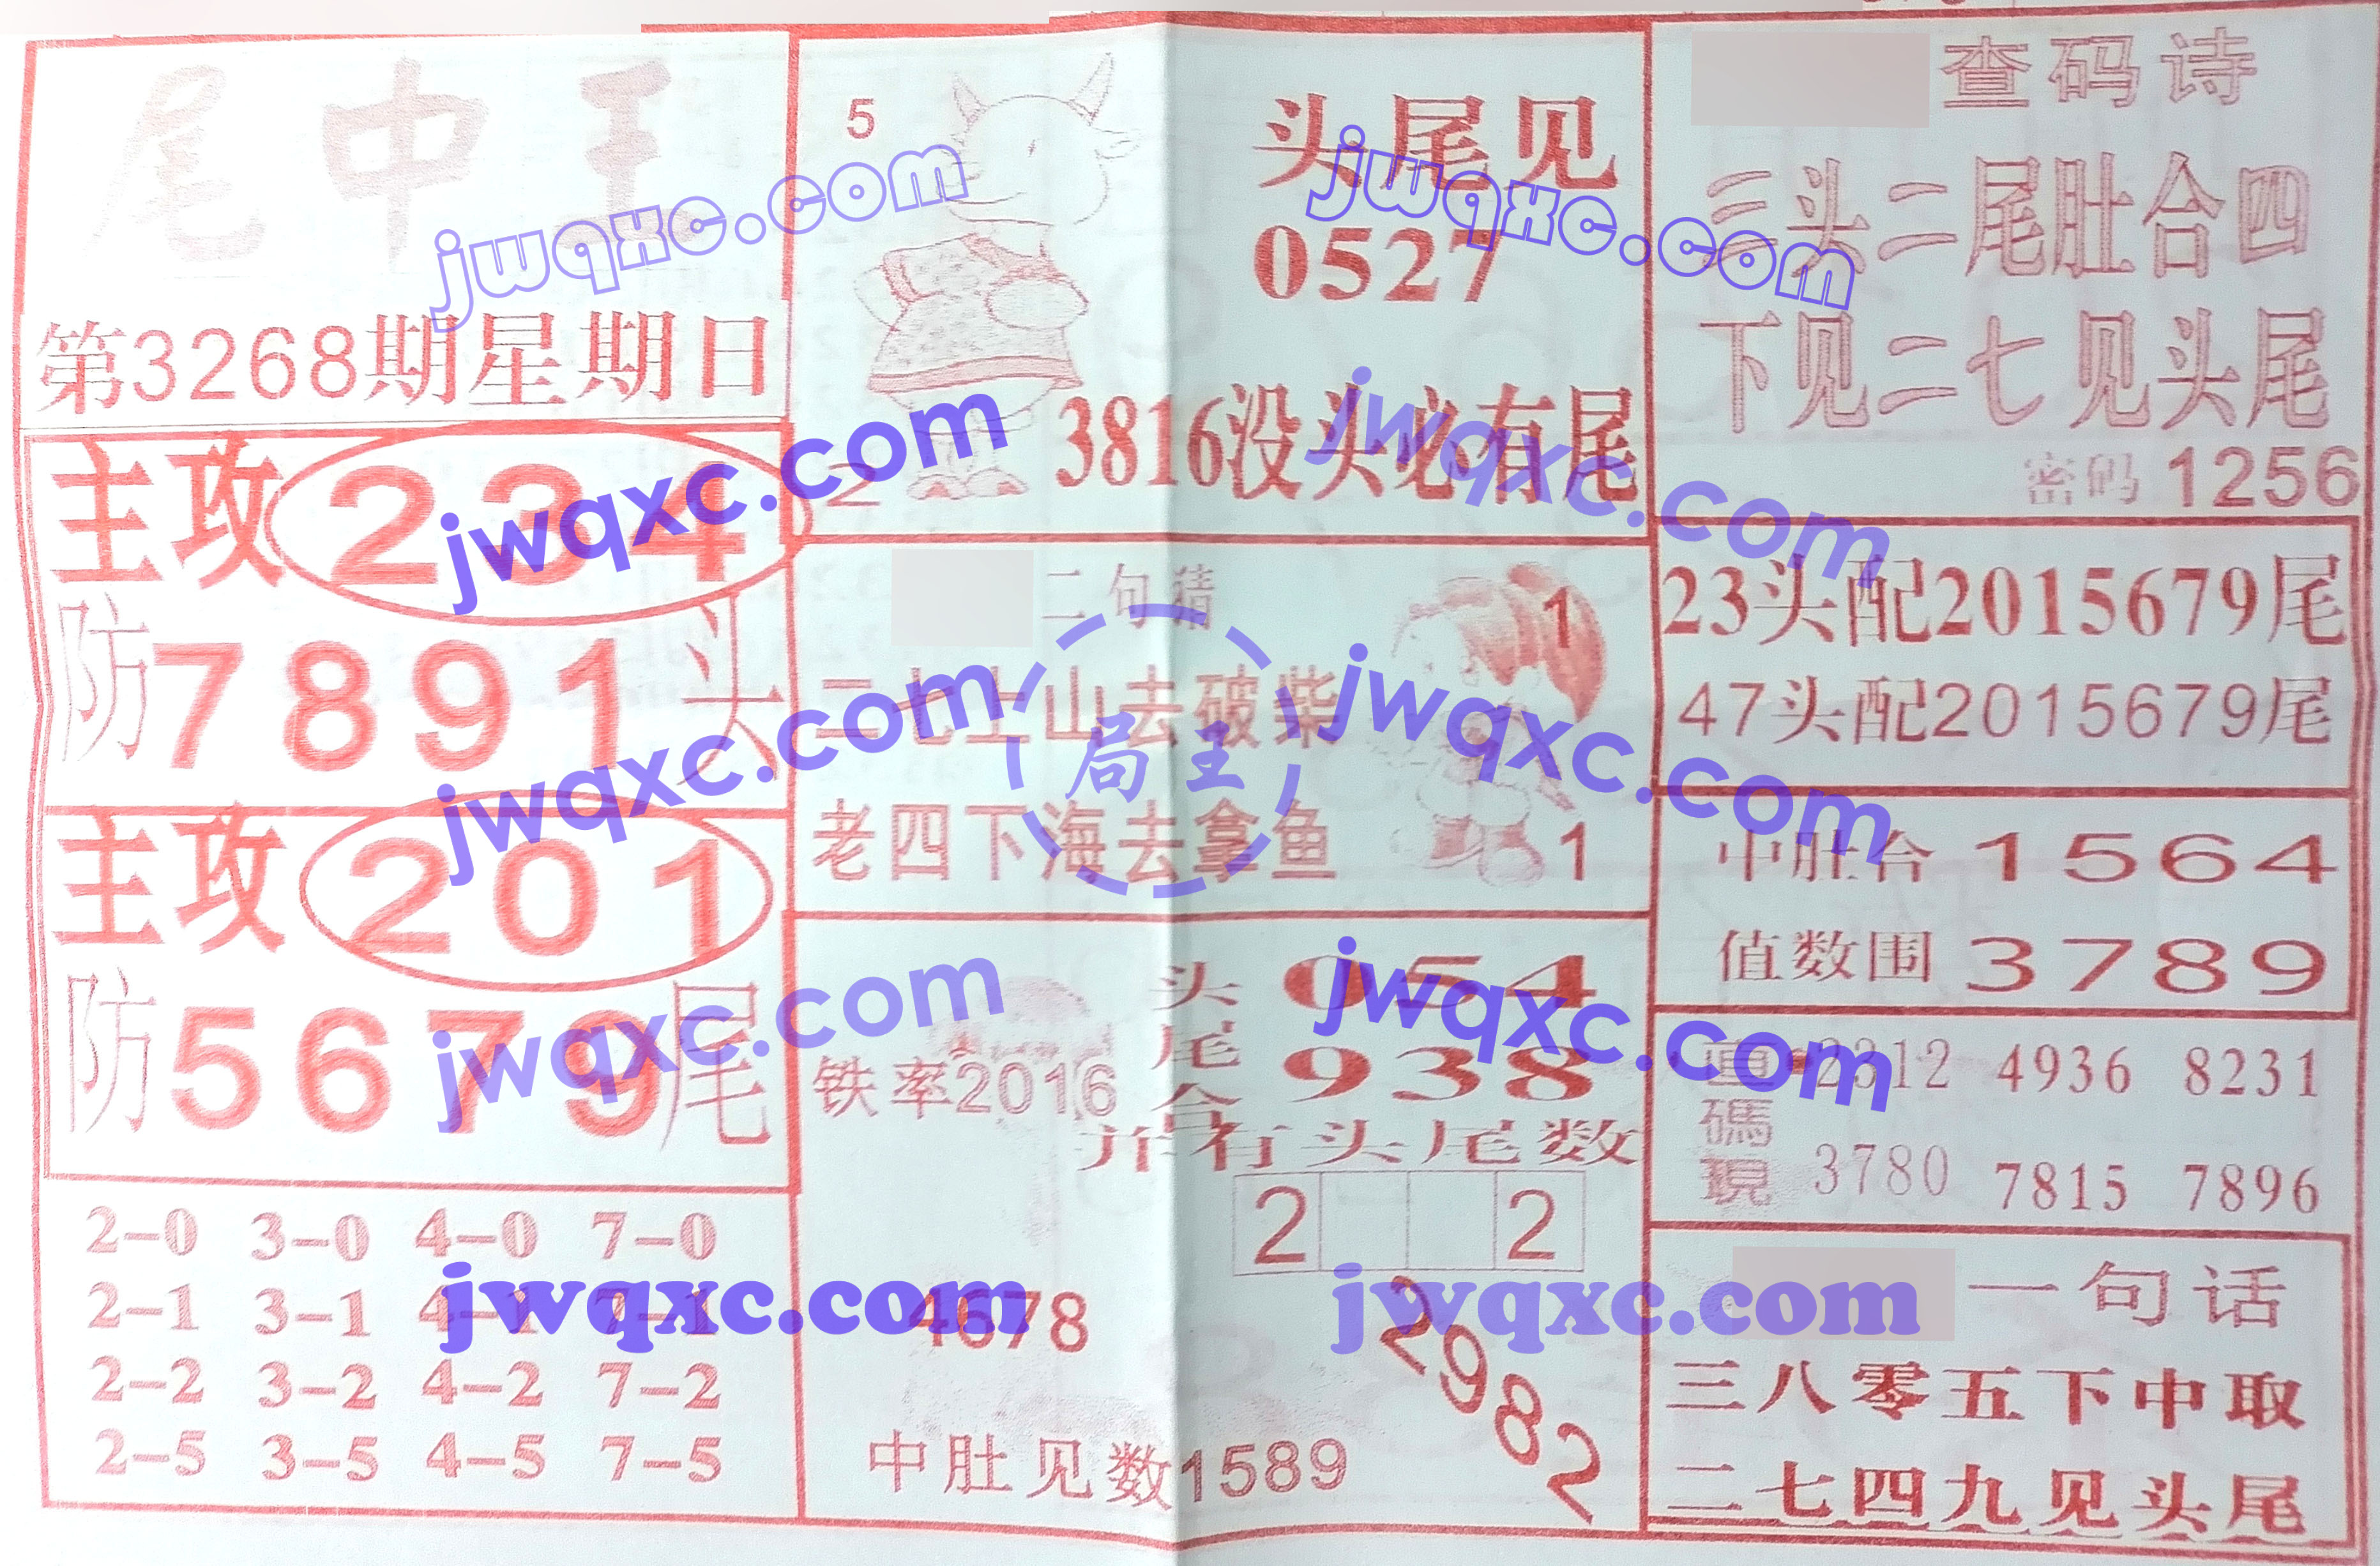 尾中王
第3268期星期日
主攻234
防7891头
主攻201
防5679尾
2-0 3-0 4-0 7-0
2-1 3-1 4-1 7-1
2-2 3-2 4-2 7-2
2-5 3-5 4-5 7-5
5
头尾见
0527
3816没头必有尾
2
二句猜
1
二七上山去破柴
老四下海去拿鱼
1
头054
尾938
铁率2016
合
并有头尾数
2 2
4678
2982
中肚见数1589
查码诗
三头二尾肚合四
下见二七见头尾
密码 1256
23头配2015679尾
47头配2015679尾
中肚合1564
值数围3789
直碼現
2312 4936 8231
3780 7815 7896
一句话
三八零五下中取
二七四九见头尾
jwqxc.com
jwqxc.com
jwqxc.com
jwqxc.com
jwqxc.com
jwqxc.com
局王
jwqxc.com
jwqxc.com
jwqxc.com
jwqxc.com